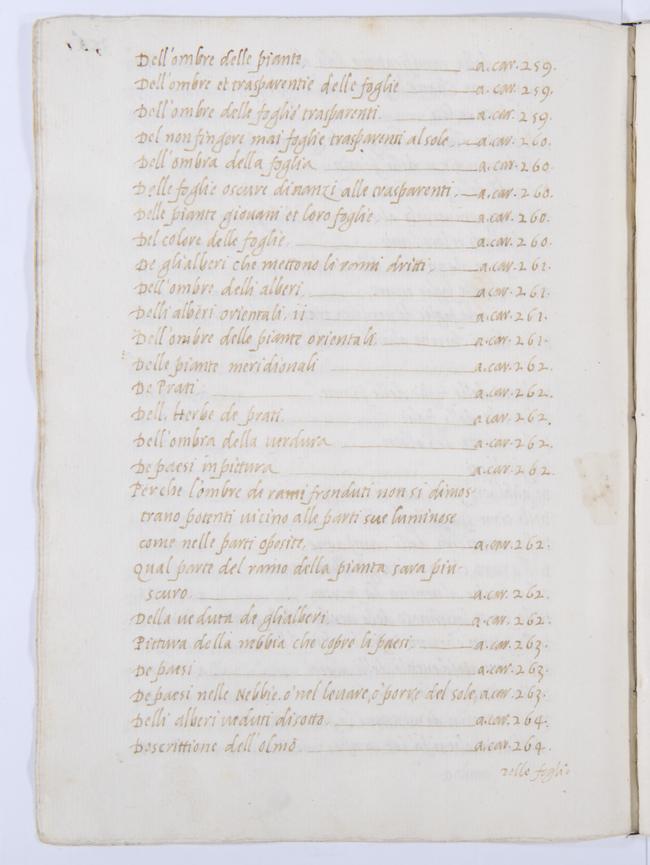 Dell'ombre delle piante a.car.259.
Dell'ombre et trasparentie delle foglie a.car.259.
Dell'ombre delle foglie trasparenti. a.car.259.
Del non fingere mai foglie trasparenti al sole a.car.260.
Dell'ombra della foglia a.car.260.
Delle foglie oscure dinanzi alle trasparenti. a.car.260.
Delle piante giouani et loro foglie a.car.260.
Del colore delle foglie. a.car.260.
De gli alberi che mettono li rami dritti. a.car.261.
Dell'ombre delli alberi. a.car.261.
Delli alberi orientali. ii a.car.261.
Dell'ombre delle piante orientali. a.car.261.
Delle piante meridionali a.car.262.
De Prati a.car.262.
Dell. Herbe de prati. a.car.262.
Dell'ombra della uerdura a.car.262.
De paesi in pittura a.car.262.
Perche l'ombre de rami fronduti non si dimos-
trano potenti uicino alle parti sue luminose
come nelle parti oposite. a.car.262.
Qual parte del ramo della pianta sara piu
scuro a.car.262.
Della ueduta de gli alberi a.car.262.
Pittura della nebbia che copre li paesi a.car.263.
De paesi a.car.263.
De paesi nelle Nebbie. o' nel leuare, o' porre del sole, a.car.263.
Delli alberi ueduti disotto a.car.264.
Descrittione dell'olmo a.car.264.
Delle foglie